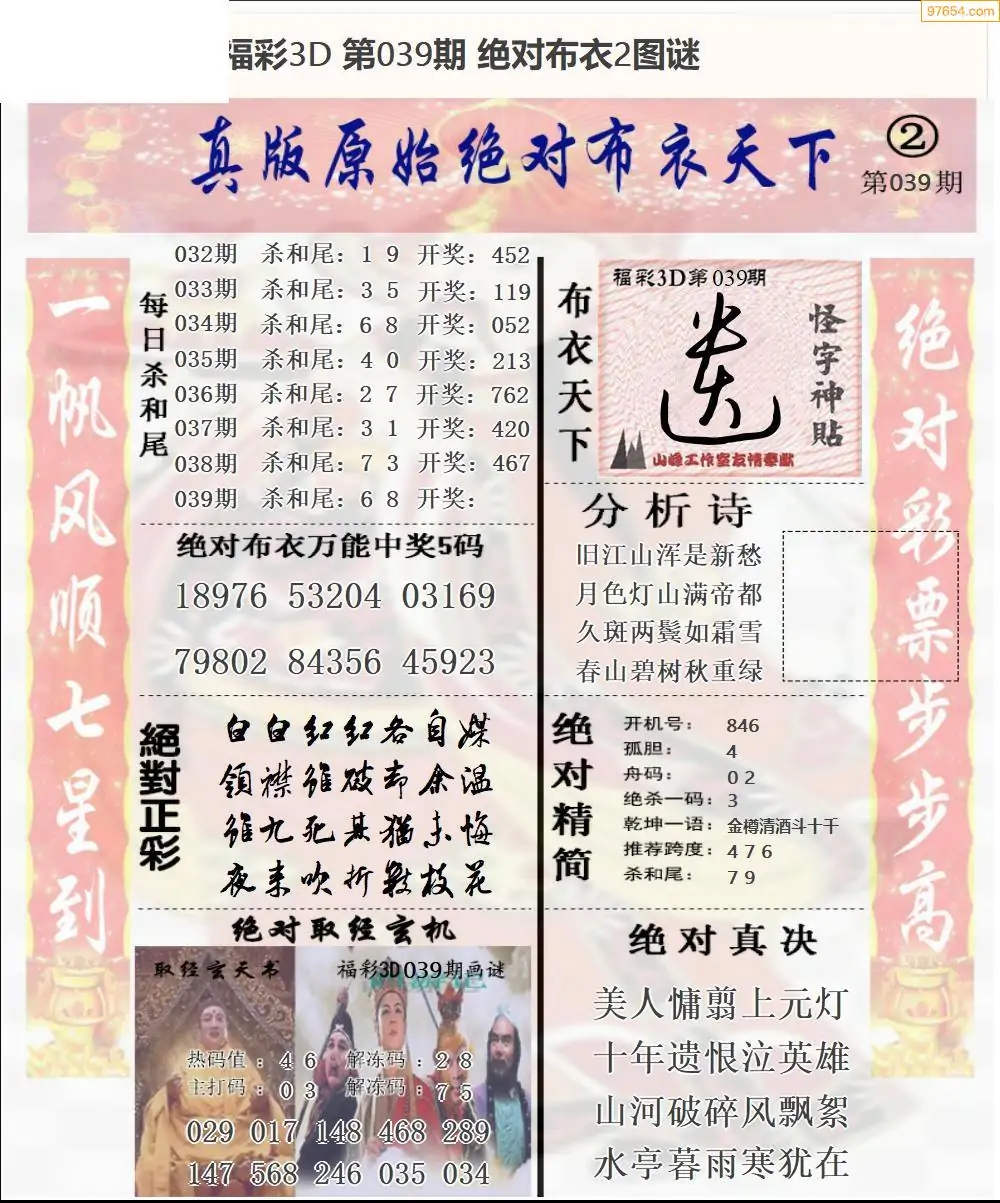 97654.com
福彩3D 第039期 绝对布衣2图谜
真版原始绝对布衣天下
②
第039期
一帆风顺七星到
每日杀和尾
032期 杀和尾：1 9 开奖：452
033期 杀和尾：3 5 开奖：119
034期 杀和尾：6 8 开奖：052
035期 杀和尾：4 0 开奖：213
036期 杀和尾：2 7 开奖：762
037期 杀和尾：3 1 开奖：420
038期 杀和尾：7 3 开奖：467
039期 杀和尾：6 8 开奖：
绝对布衣万能中奖5码
18976 53204 03169
79802 84356 45923
絕對正彩
白白红红各自媒
領襟雖破却余温
雖九死其猶未悔
夜来吹折數枝花
绝对取经玄机
取经玄天书
福彩3D039期画谜
热码值：4 6 解冻码：2 8
主打码：0 3 解冻码：7 5
029 017 148 468 289
147 568 246 035 034
布衣天下
福彩3D第039期
怪字神貼
山峰工作室友情奉献
分析诗
旧江山浑是新愁
月色灯山满帝都
久斑两鬓如霜雪
春山碧树秋重绿
绝对精简
开机号：846
孤胆：4
舟码：0 2
绝杀一码：3
乾坤一语：金樽清酒斗十千
推荐跨度：4 7 6
杀和尾：7 9
绝对真决
美人慵翦上元灯
十年遗恨泣英雄
山河破碎风飘絮
水亭暮雨寒犹在
绝对彩票步步高